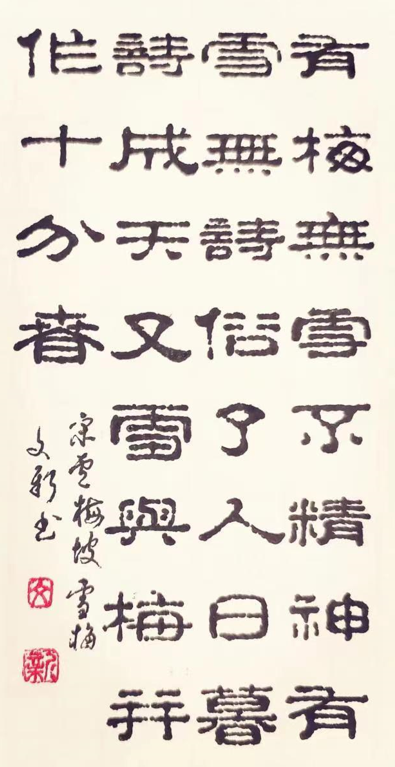 有梅無雪不精神有
雪無詩俗了人日暮
詩成天又雪與梅并
作十分春
宋 盧梅坡 雪梅
文新書
文
新